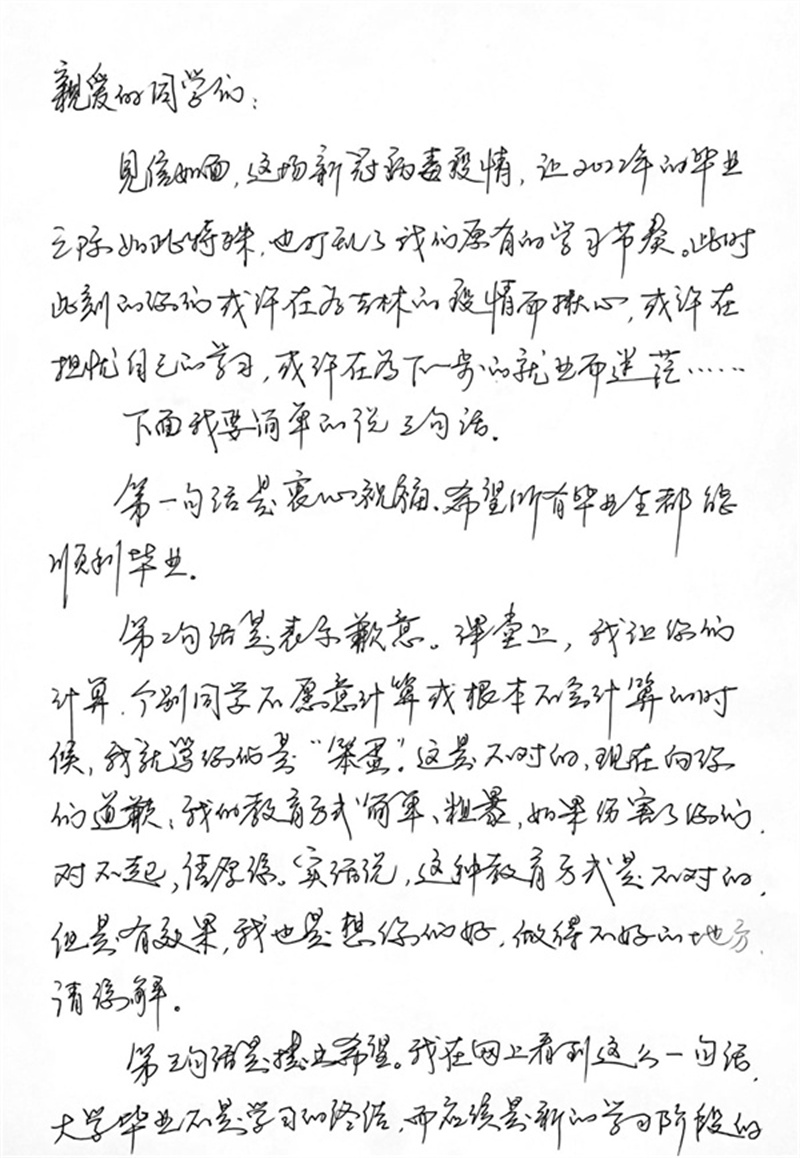 亲爱的同学们：
见信如面，这场新冠病毒疫情，让2022年的毕业
之际如此特殊，也打乱了我们原有的学习节奏。此时
此刻的你们或许在为吉林的疫情而揪心，或许在
担忧自己的学习，或许在为下一步的就业而迷茫……
下面我要简单的说三句话．
第一句话是衷心祝福、希望所有毕业生都能
顺利毕业．
第二句话是表示歉意。课堂上，我让你们
计算、个别同学不愿意计算或根本不会计算的时
候，我就骂你们是“笨蛋”。这是不对的，现在向你
们道歉，我的教育方式简单、粗暴，如果伤害了你们，
对不起，请原谅。实话说，这种教育方式是不对的，
但是有效果，我也是想你们好，做得不好的地方，
请谅解。
第三句话是提出希望。我在网上看到这么一句话，
大学毕业不是学习的终结，而应该是新的学习阶段的